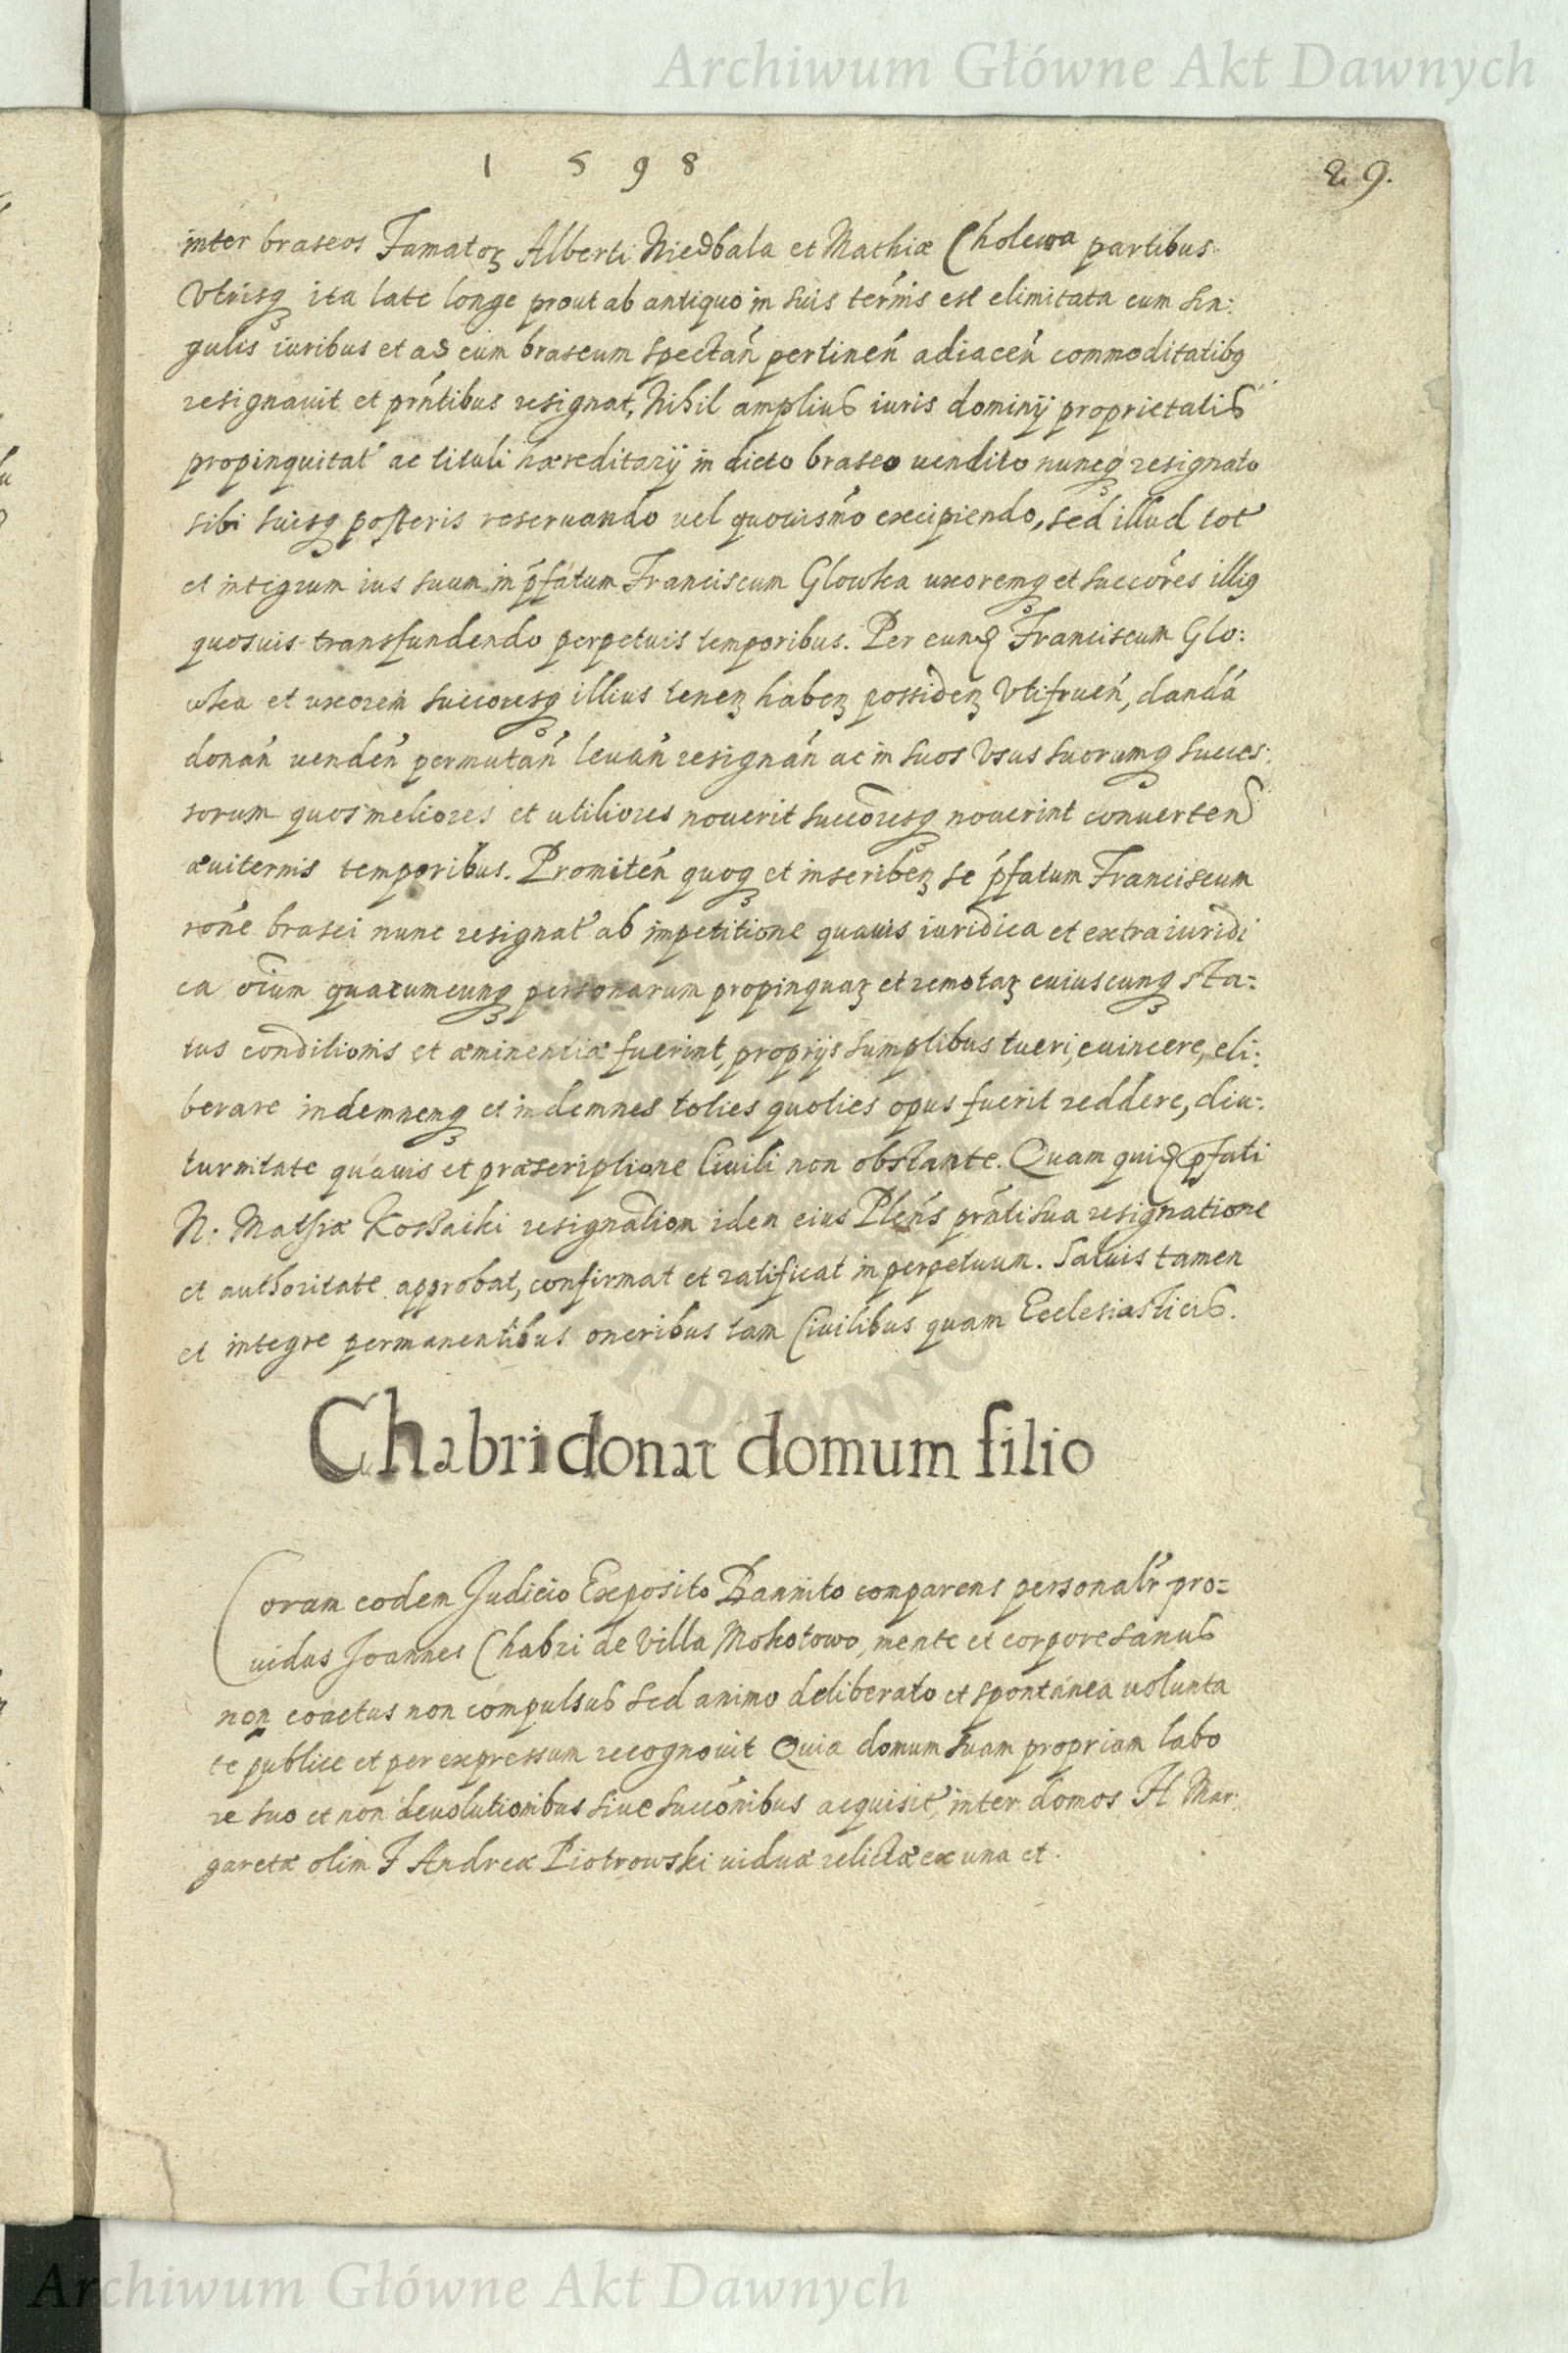 Archiwum Główne Akt Dawnych
1 5 9 8
29.
inter braseos Famatoꝝ Alberti Niedbala et Mathiæ Cholewa partibus
Vtrisqꝫ ita late longe prout ab antiquo in suis termis est elimitata cum sin:
gulis iuribus et ad eum braseum spectań pertineń adiaceń commoditatibꝫ
resignauit et pńtibus resignat, Nihil amplius iuris dominÿ proprietatis
propinquitat ac tituli hæreditarÿ in dicto braseo uendito nuncqꝫ resignato
sibi suisqꝫ posteris reseruando uel quouismo excipiendo, sed illud tot
et integrum ius suum in pfatum Franciscum Glowka uxoremqꝫ et succores illiꝫ
quosuis transfundendo perpetuis temporibus. Per eund Franciscum Glo:
wka et uxorem succoresqꝫ illius teneꝝ habeꝝ possideꝝ Vtifrueń, dandá
donań uendeń permutań leuań resignań ac in suos Vsus suorumqꝫ succes:
sorum quos meliores et utiliores nouerit succoresqꝫ nouerint conuertend
æuiternis temporibus. Promiteń quoqꝫ et inscribeꝝ se pfatum Franciscum
rońe brasei nunc resignat ab impetitione quauis iuridica et extraiuridi
ca oium quarumcunqꝫ personarum propinquaꝝ et remotaꝝ cuiuscunqꝫ sta=
tus conditionis et æminentiæ fuerint, proprÿs sumptibus tueri, euincere, eli:
berare indemnemqꝫ et indemnes toties quoties opus fuerit reddere, diu:
turnitate quauis et præscriptione Ciuili non obstante. Quam quid pfati
N. Mathiæ Kossaiki resignation iden eius Pleńs pńti sua resignatione
et authoritate approbat, confirmat et ratificat in perpetuum. Saluis tamen
et integre permanentibus oneribus tam Ciuilibus quam Ecclesiasticis.
Chabri donat domum filio
Coram eodem Judicio Exposito Bannito comparens personalr pro=
uidus Joannes Chabri de Villa Mokotowo, mente et corpore sanus
non coactus non compulsus sed animo deliberato et spontanea uolunta
te publice et per expressum recognouit Quia domum suam propriam labo
re suo et non deuolutionibus siue succonibus acquisit inter domos H Mar
garetæ olim F Andreæ Piotrowski uiduæ relictæ ex una et
Archiwum Główne Akt Dawnych